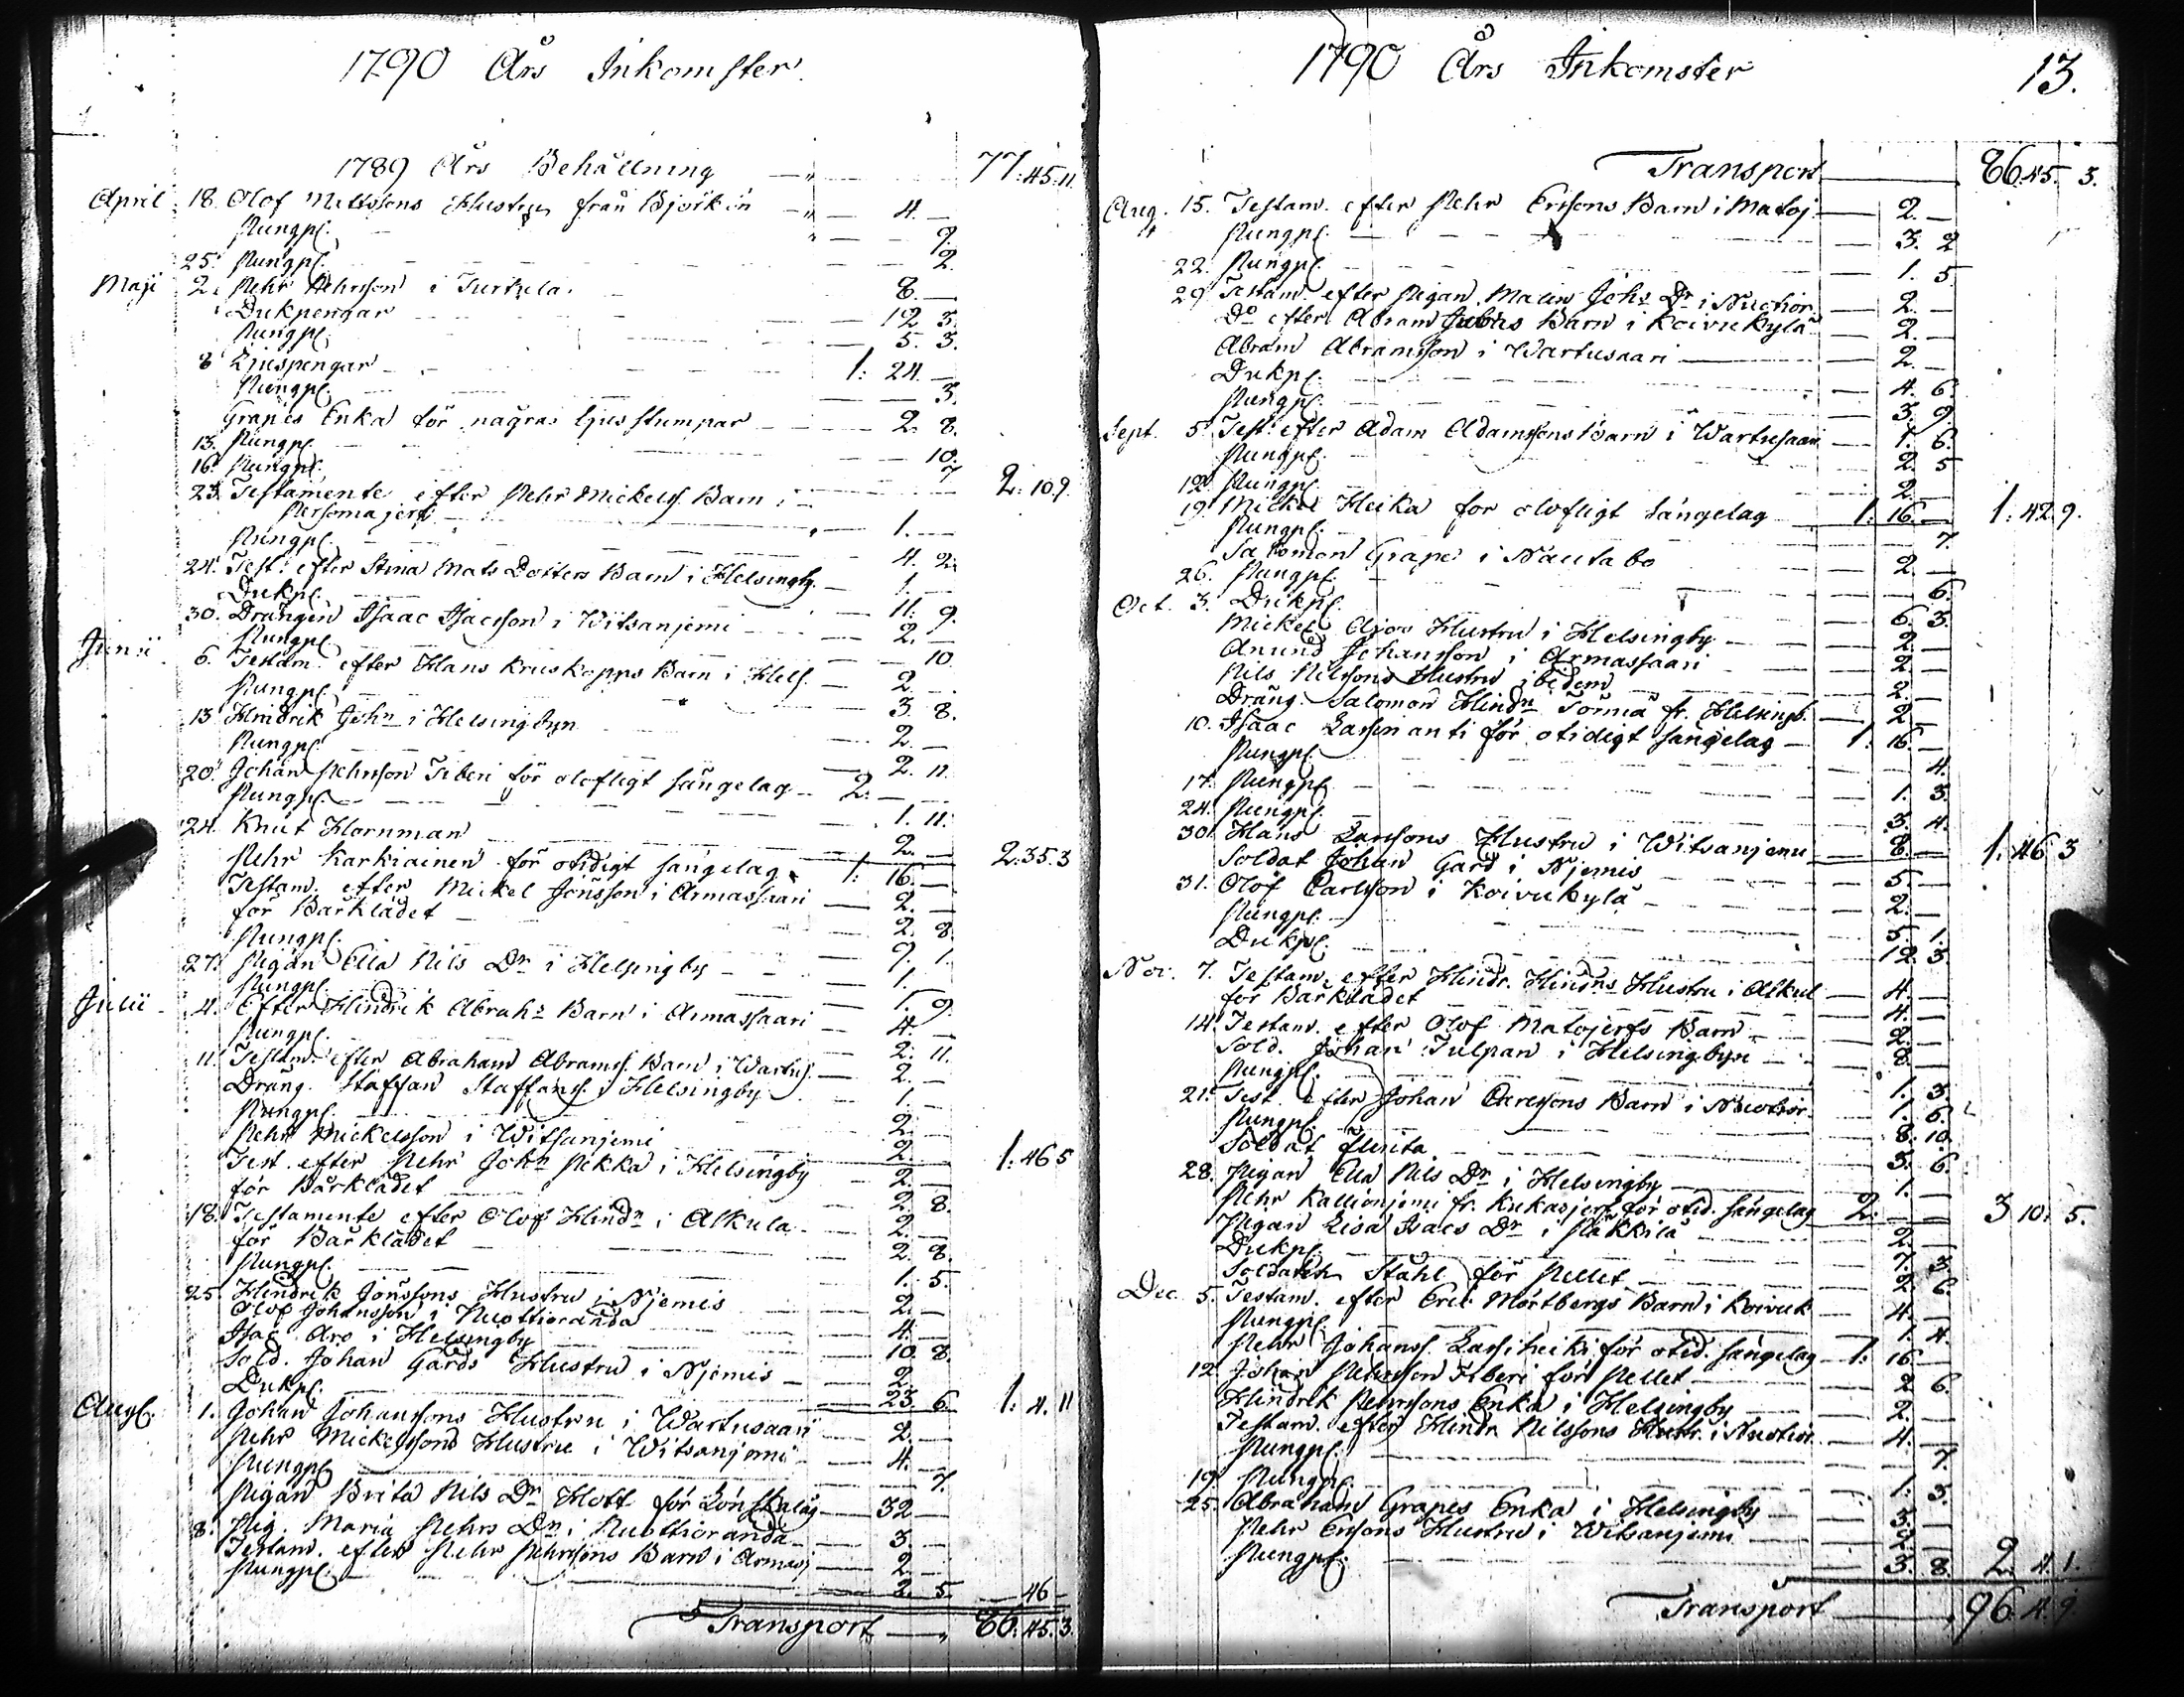 1790 Års Inkomster.
1789 Års Behållning 77:45.11.
April 18. Olof Mattssons Hustru från Björkön 4.—
Pungp. 9.
25. Pungp. 2.
Maji 2. Pehr Pehrsson i Turtula 8.—
Dukpengar 12. 3.
Pungp. 5. 3.
8 Ljuspengar 1: 24.—
Pungp. 3.
Grapes Enka för några ljusstumpar 2. 8.
13. Pungp. 10.
16. Pungp. 7
23. Testamente efter Pehr Mickelss. Barn i 2:10.9.
Persomajerfi 1.—
Pungp. 4. 2.
24. Test: efter Stina Mats Dotters Barn i Helsingby. 1.—
Dukp. 11. 9.
30. Drängen Isaac Isacsson i Witsanjemi 2.—
Pungp. 10.
Junii 6. Testam. efter Hans Kruskopps Barn i Hels. 2.—
Pungp. 3. 8.
13. Hindrik John i Helsingbyn 2.—
Pungp. 2. 11.
20. Johan Pehrsson Tiberi för olofligt sängelag 2.—
Pungp. 1. 11.
24. Knut Hornman 2.— 2:35.3
Pehr Karkiainen för otidigt sängelag 1: 16.—
Testam. efter Mickel Jönsson i Armassaari 2.—
för Bårklädet 2. 8
Pungp. 9. 1.
27. Pigan Ella Nils Dr i Helsingby 1.—
Pungp. 1. 9.
Julii 4. Efter Hindrik Abrahs Barn i Armassaari 4.—
Pungp. 2. 11.
11. Testam. efter Abraham Abramss. Barn i Wartus. 2.—
Dräng. Staffan Staffanss. i Helsingby 1.—
Pungp. 2.
Pehr Mickelsson i Witsanjemi 2.— 1:46 5
Test. efter Pehr John Pekka i Helsingby 2.—
för Bårklädet 2. 8.
18. Testamente efter Olof Hindn i Alkula 2.—
för Bårklädet 2. 8.
Pungp. 1. 5.
25. Hindrik Jönssons Hustru i Njemis 2.—
Olof Johansson i Nuottioranda 4.—
Isac Aro i Helsingby 10. 8.
Sold. Johan Gards Hustru i Njemis 2.
Dukp. 23. 6. 1. 4. 11
Aug. 1. Johan Johanssons Hustru i Wartusaari 2.—
Pehr Mickelssons Hustru i Witsanjemi 4.—
Pungp. 7.
Pigan Brita Nils Dr Hott för Lönskaläg 32.—
8. Pig. Maria Pehrs Dr i Nuottioranda 3.—
Testam. efter Pehr Pehrssons Barn i Armass 2.—
Pungp. 2. 5. 46
Transport 86:45.3.
1790 Års Inkomster 13.
Transport 86:45. 3.
Aug. 15. Testam. efter Pehr Ersons Barn i Matoj 2.—
Pungp. 3. 2
22. Pungp. 1. 5
29. Testam. efter Pigan Malin Johs Dr i Nuotior. 2.—
Do efter Abram Barn i Koivukylä 2.—
Abram Abramsson i Wartusaari 2.—
Dukp. 4. 6.
Pungp. 3. 9.
Sept. 5. Test: efter Adam Adamssons Barn i Wartusaari 1. 6.
Pungp. 2. 5
12. Pungp. 2.—
19. Mickel Heika för olofligt sängelag 1: 16.— 1:42 9.
Pungp. 7.
Salomon Grape i Nautabo 2.—
26. Pungp. 6.
Oct. 3. Dukp. 6. 3.
Mickel Ajos Hustru i Helsingby 2.—
Anund Johansson i Armassaari 2.—
Nils Nilssons Hustru ibidem 2.—
Dräng. Salomon Hindn Törmä fr. Helsingb. 2.—
10. Isaac Lassinanti för otidigt sängelag 1: 16.—
Pungp. 4.
17. Pungp. 1. 3.
24. Pungp. 3. 4.
30. Hans Larssons Hustru i Witsanjemi 8.— 1:46 3
Soldat Johan Gard i Njemis 5.—
31. Olof Carlsson i Koivukylä 2.—
Pungp. 5. 1.
Dukp. 12. 3.
Nov. 7. Testam. efter Hindr. Hindrs Hustru i Alkul 4.—
för Bårklädet 4.—
14. Testam. efter Olof Matojerfs Barn 2.—
Sold. Johan Tulpan i Helsingbyn 8.—
Pungp. 1. 3.
21. Test. efter Johan Carlssons Barn i Nuotior. 1. 6.
Pungp. 8. 10.
Soldat Flinta 3. 6.
28. Pigan Ella Nils Dr i Helsingby 1.—
Pehr Kallionjemi fr. Kukasjerf. för otid. sängelag 2.— 3 10. 5.
Pigan Lisa Isacs Dr i Päkkilä 2.—
Dukp. 7. 3
Soldaten Ståhl för Pellet 2. 6.
Dec. 5. Testam. efter Eric Mörtbergs Barn i Koivuk. 4.—
Pungp. 1. 4.
Pehr Johanss. Lassiheiki för otid. sängelag 1: 16.—
12. Johan Pehrsson Tiberi för Pellet 2 6.
Hindrik Pehrssons Enka i Helsingby 2.—
Testam. efter Hindr. Nilssons Hustr. i Nuotior. 4.—
Pungp. 7.
19. Pungp. 1. 3.
25. Abraham Grapes Enka i Helsingby 3.—
Pehr Ersons Hustru i Witsanjemi 2.—
Pungp. 3. 8. 2. 4. 1.
Transport 96. 4. 9.